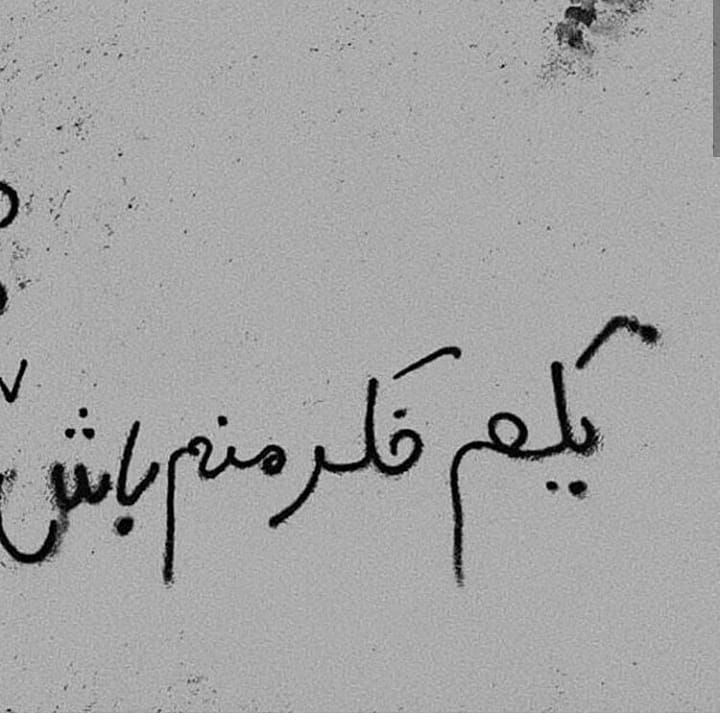 یکم فکر منم باش